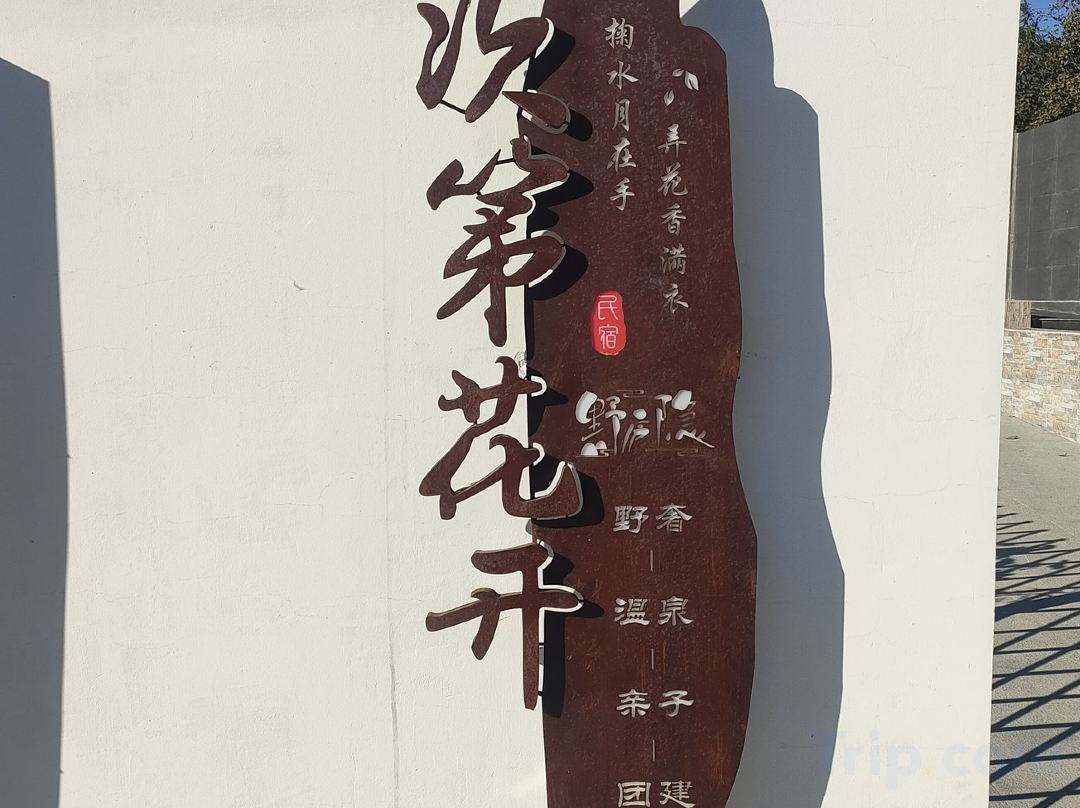 次第花开
掬水月在手
弄花香满衣
民宿
野隐
野奢
温泉
亲子
团建
Trip.com